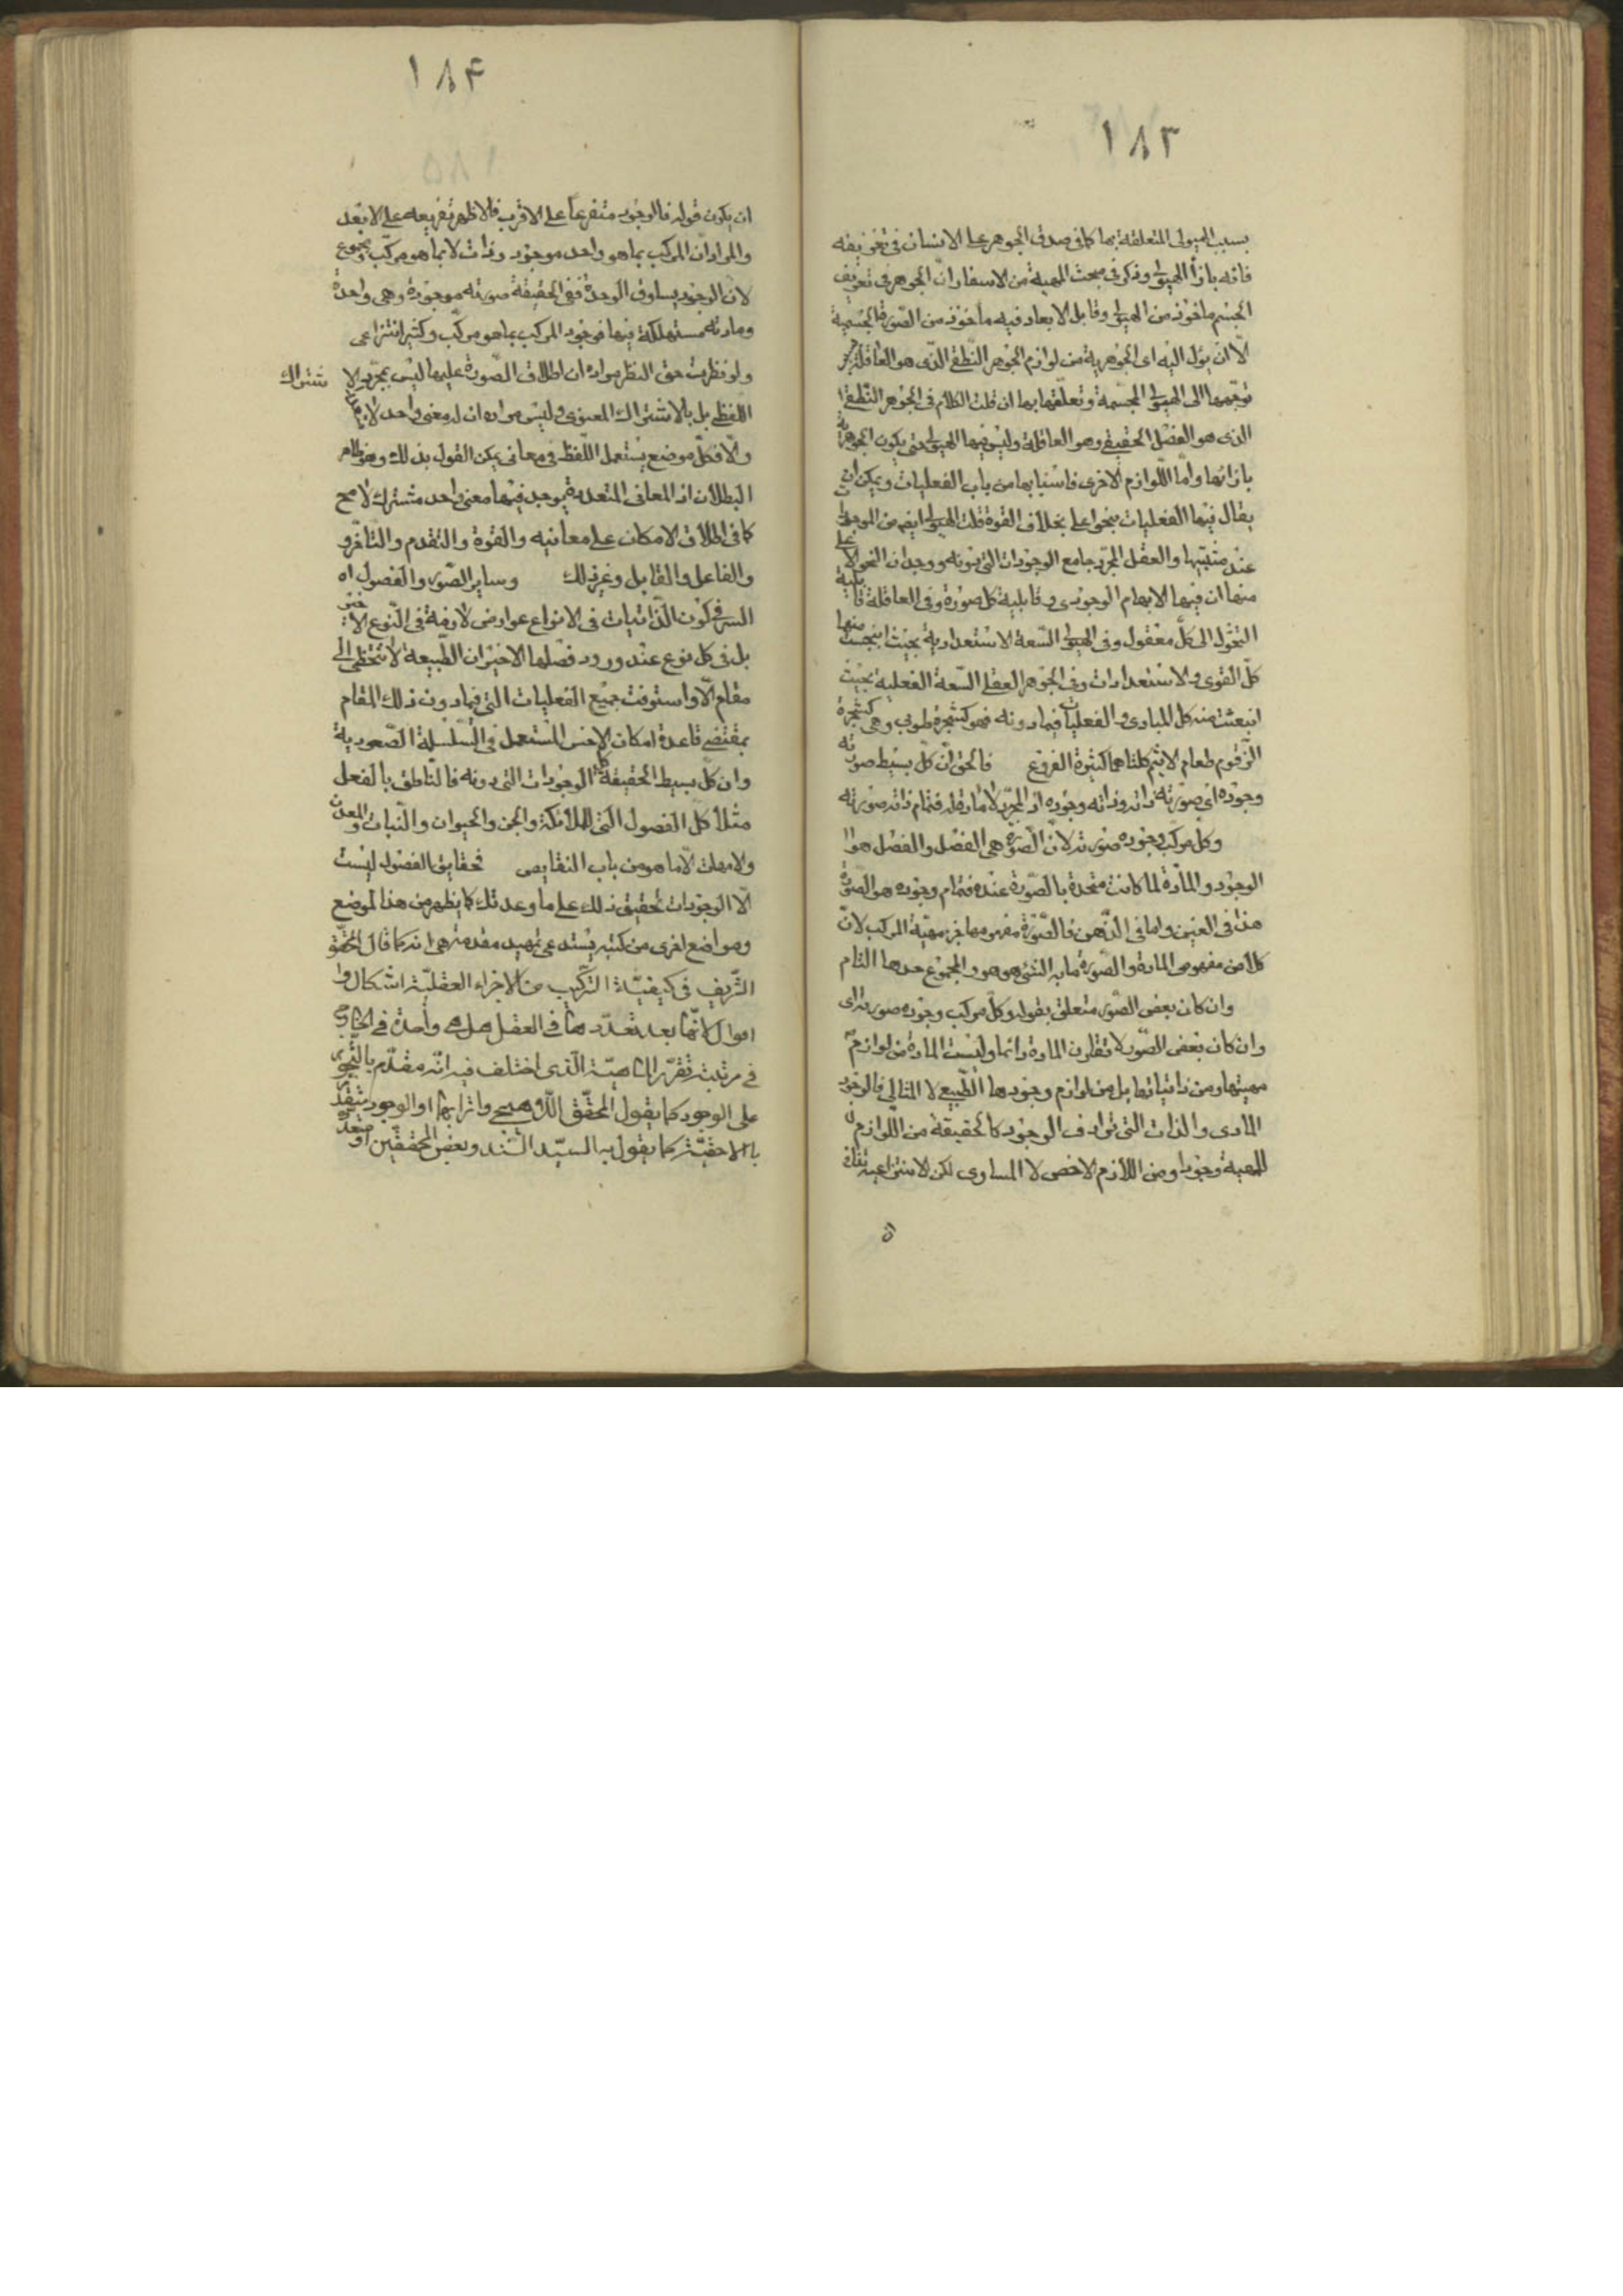 ١٨٣
بسبب الهيولى المتعلقة بها كما فى صدق الجوهر على الانسان فى تعريفه
فانه بازاء الهيولى وذكر فى مبحث المهية من الاسفار ان الجوهر فى تعريف
الجسم ماخوذ من الهيولى وقابل الابعاد فيه ماخوذ من الصورة الجسمية
الّا ان يؤل اليه اى الجوهرية من لوازم الجوهر النطقى الذى هو العاقلة
توجهها الى الهيولى المجسمة وتعلقها بها ان قلت الكلام فى الجوهر النطقى
الذى هو الفصل الحقيقى وهو العاقلة وليس فيها الهيولى حتى يكون الجوهرية
بازائها واما اللوازم الاخرى فاشباهها من باب الفعليات ويمكن ان
يقال فيها الفعليات بنحو اعلى بخلاف القوة قلت الهيولى ايضا من الموجودات
عند مثبتيها والعقل المجرد جامع الوجودات التى دونه ووجدان النحو الاعلى
منها ان فيها الابهام الوجودى وقابلية كل صورة وفى العاقلة قابلية
التحول الى كل معقول وفى الهيولى السعة الاستعدادية بحيث انبجست منها
كل القوى والاستعدادات وفى الجوهر العقلى السعة الفعلية بحيث
انبعثت منه كل المبادى والفعليات فيما دونه فهو كشجرة طوبى وهى كشجرة
الزقوم طعام الاثيم كلتاهما كثيرة الفروع فالحق ان كل بسيط صورته
وجوده اى صورته ذاته وذاته وجوده اذ المجرد لا مادة له فتمام ذاته صورته
وكل مركب وجوده صورته لان الصورة هى الفصل والفصل هو
الوجود والمادة لما كانت متحدة بالصورة عنده فتمام وجوده هو الصورة
هذا فى العين واما فى الذهن فالصورة مفهومها غير مهية المركب لان
كلا من مفهومى المادة والصورة ما به الشئ هو هو والمجموع حدها التام
وان كان بعض الصور متعلق بقوله وكل مركب وجوده صورته اى
وان كان بعض الصور لا تفارق المادة دائما وليست المادة من لوازم
مهيتها ومن ذاتياتها بل من لوازم وجودها الطبيعى لا المثالى فالوجود
المادى والذات التى ترادف الوجود كالحقيقة من اللوازم
للمهية وجودا ومن اللازم الاخص لا المساوى لكن لا
١٨٤
ان يكون قوله فالوجود متفرعا على الاقرب فالاظهر تفريعه على الابعد
والمراد ان المركب بما هو واحد موجود وذات لا بما هو مركب ومجموع
لان الوجود يساوق الوحدة ففى الحقيقة صورته موجودة وهى واحدة
ومادته مستهلكة فيها فوجود المركب بما هو مركب وكثير انتزاعى
ولو نظرت حق النظر مراده ان اطلاق الصورة عليها ليس بمجرد الا شتراك
اللفظى بل بالاشتراك المعنوى وليس مراده ان له معنى واحد
والّا فكل موضع يستعمل اللفظ فى معانى يمكن القول بذلك وهو ظاهر
البطلان اذ المعانى المتعددة يوجد فيها معنى واحد مشترك لا مح
كما فى اطلاق الامكان على معانيه والقوة والتقدم والتاخر و
والفاعل والقابل وغير ذلك وساير الصور والفصول اه
السر فى كون الذاتيات فى الانواع عوارض لازمة فى النوع الاخير
بل فى كل نوع عند ورود فصلها الاخير ان الطبيعة لا تتخطى الى
مقام الّا واستوفت جميع الفعليات التى فيما دون ذلك المقام
بمقتضى قاعدة امكان الاخس المستعمل فى السلسلة الصعودية
وان كل بسيط الحقيقة كل الوجودات التى دونه فالناطق بالفعل
مثلا كل الفصول التى للملائكة والجن والحيوان والنبات والمعدن
والامهات الّا ما هو من باب النقايص فحقايق الفصول ليست
الّا الوجودات تحقيق ذلك على ما وعدتك كما يظهر من هذا الموضع
ومواضع اخرى من كتبه يستدعى تمهيد مقدمة هى انه كما قال المحقق
الشريف فى كيفية التركيب من الاجزاء العقلية اشكال و
اموال لانها بعد تعددها فى العقل هل هى واحدة فى الخارج
فى مرتبة تقرر الماهية الذى اختلف فيه انه مقدم بالتجوهر
على الوجود كما يقول المحقق الدوانى واترابه او الوجود متقدم
بالاحقية كما يقول به السيد السند وبعض المحققين او متعددة